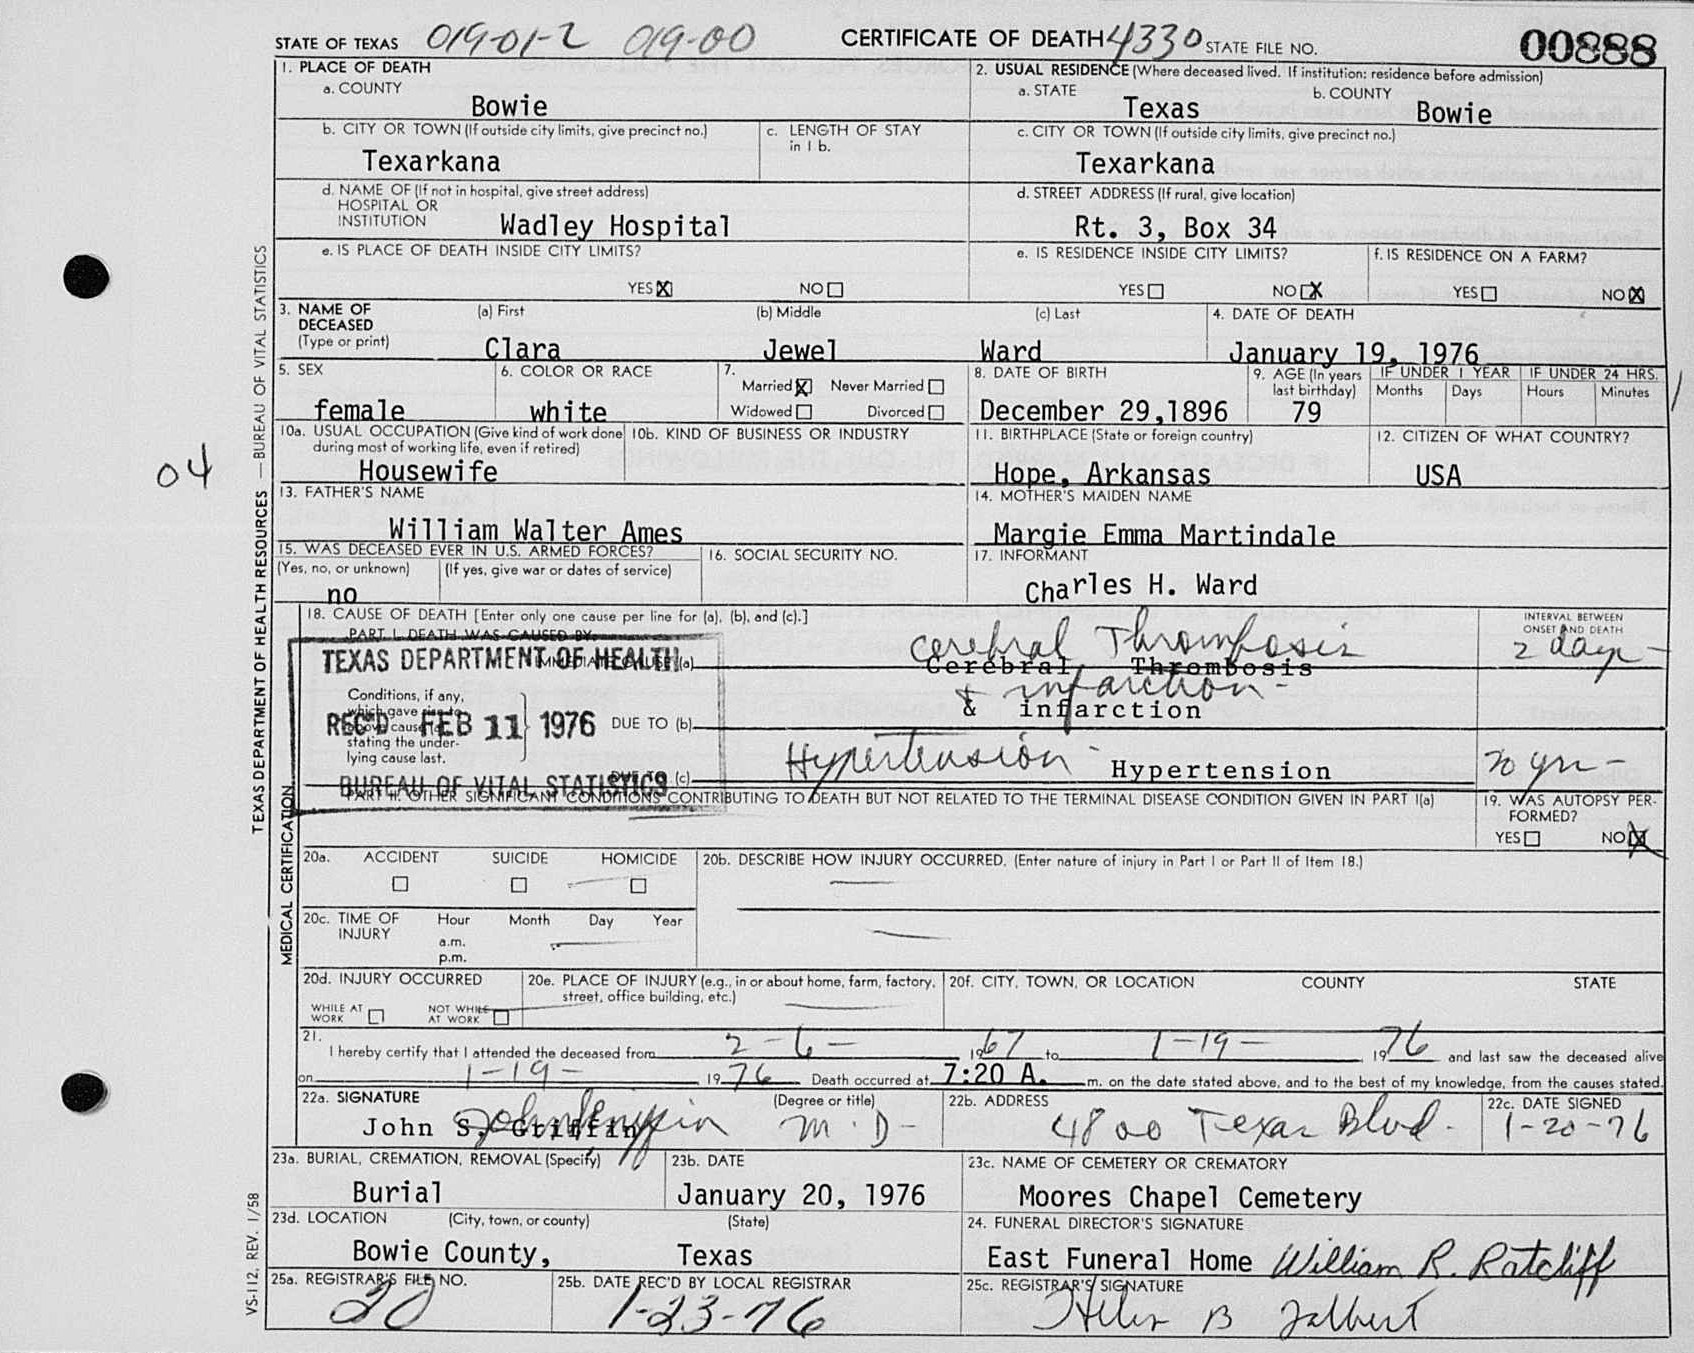 STATE OF TEXAS 019-01-2 019-00 CERTIFICATE OF DEATH 4330 STATE FILE NO. 00888
1. PLACE OF DEATH
a. COUNTY
Bowie
2. USUAL RESIDENCE (Where deceased lived. If institution: residence before admission)
a. STATE b. COUNTY
Texas Bowie
b. CITY OR TOWN (If outside city limits, give precinct no.)
Texarkana
c. LENGTH OF STAY
in 1 b.
c. CITY OR TOWN (If outside city limits, give precinct no.)
Texarkana
d. NAME OF (If not in hospital, give street address)
HOSPITAL OR
INSTITUTION Wadley Hospital
d. STREET ADDRESS (If rural, give location)
Rt. 3, Box 34
e. IS PLACE OF DEATH INSIDE CITY LIMITS?
YES X NO
e. IS RESIDENCE INSIDE CITY LIMITS?
YES NO X
f. IS RESIDENCE ON A FARM?
YES NO X
3. NAME OF
DECEASED
(Type or print)
(a) First (b) Middle (c) Last
Clara Jewel Ward
4. DATE OF DEATH
January 19, 1976
5. SEX
female
6. COLOR OR RACE
white
7.
Married X Never Married
Widowed Divorced
8. DATE OF BIRTH
December 29,1896
9. AGE (In years
last birthday)
79
IF UNDER 1 YEAR
Months Days
IF UNDER 24 HRS.
Hours Minutes
10a. USUAL OCCUPATION (Give kind of work done
during most of working life, even if retired)
Housewife
10b. KIND OF BUSINESS OR INDUSTRY
11. BIRTHPLACE (State or foreign country)
Hope, Arkansas
12. CITIZEN OF WHAT COUNTRY?
USA
04
13. FATHER'S NAME
William Walter Ames
14. MOTHER'S MAIDEN NAME
Margie Emma Martindale
15. WAS DECEASED EVER IN U.S. ARMED FORCES?
(Yes, no, or unknown) (If yes, give war or dates of service)
no
16. SOCIAL SECURITY NO.
17. INFORMANT
Charles H. Ward
TEXAS DEPARTMENT OF HEALTH RESOURCES — BUREAU OF VITAL STATISTICS
MEDICAL CERTIFICATION
18. CAUSE OF DEATH [Enter only one cause per line for (a), (b), and (c).]
PART I. DEATH WAS CAUSED BY:
IMMEDIATE CAUSE (a)
Cerebral Thrombosis
Cerebral Thrombosis
& infarction -
& infarction
INTERVAL BETWEEN
ONSET AND DEATH
2 days -
TEXAS DEPARTMENT OF HEALTH
REC'D FEB 11 1976
BUREAU OF VITAL STATISTICS
Conditions, if any,
which gave rise to
above cause (a)
stating the under-
lying cause last.
DUE TO (b)
DUE TO (c)
Hypertension - Hypertension
20 yrs -
PART II. OTHER SIGNIFICANT CONDITIONS CONTRIBUTING TO DEATH BUT NOT RELATED TO THE TERMINAL DISEASE CONDITION GIVEN IN PART I(a)
19. WAS AUTOPSY PER-
FORMED?
YES NO X
20a. ACCIDENT SUICIDE HOMICIDE
20b. DESCRIBE HOW INJURY OCCURRED. (Enter nature of injury in Part I or Part II of Item 18.)
20c. TIME OF
INJURY
Hour Month Day Year
a.m.
p.m.
20d. INJURY OCCURRED
WHILE AT
WORK
NOT WHILE
AT WORK
20e. PLACE OF INJURY (e.g., in or about home, farm, factory,
street, office building, etc.)
20f. CITY, TOWN, OR LOCATION COUNTY STATE
21.
I hereby certify that I attended the deceased from 2-6- 1967 to 1-19- 1976 and last saw the deceased alive
on 1-19- 1976 Death occurred at 7:20 A. m. on the date stated above, and to the best of my knowledge, from the causes stated.
22a. SIGNATURE (Degree or title)
John S. Griffin M.D-
22b. ADDRESS
4800 Texas Blvd.
22c. DATE SIGNED
1-20-76
23a. BURIAL, CREMATION, REMOVAL (Specify)
Burial
23b. DATE
January 20, 1976
23c. NAME OF CEMETERY OR CREMATORY
Moores Chapel Cemetery
23d. LOCATION (City, town, or county) (State)
Bowie County, Texas
24. FUNERAL DIRECTOR'S SIGNATURE
East Funeral Home William R. Ratcliff
25a. REGISTRAR'S FILE NO.
20
25b. DATE REC'D BY LOCAL REGISTRAR
1-23-76
25c. REGISTRAR'S SIGNATURE
Helen B Talbert
VS-112, REV. 1/58